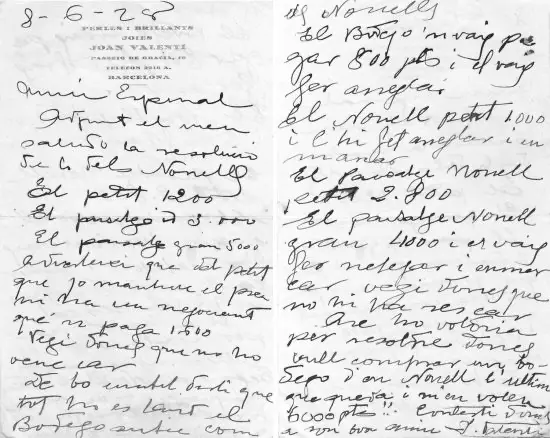 8-6-28
PERLES I BRILLANTS
JOIES
JOAN VALENTÍ
PASSEIG DE GRÀCIA, 70
TELÈFON 2916 A.
BARCELONA
Amic Espinal
Adjunt el meu
saludo la resolució
de lo dels Nonells
El petit 1200
El paisatge 3.000
El paisatge gran 5000
que jo mantinc el preu
hi ha un negociant
que n paga 1500
Vegi doncs que no ho
venc car
De bo inutil dirli que
tot no es tant el
Bodego surtia com
els Nonells
El Bodego 'n vaig pa
gar 800 pts i el vaig
fer arreglar
El Nonell petit 1.000
i l'hi fet arreglar i en
marcar
El Paisatge Nonell
petit 2.800
El paisatge Nonell
gran 4000 i el vaig
fer netejar i enmar
car vegi doncs que
no hi ha res car
Are ho voldria
per resoldre doncs
vull comprar un bo
dego d'en Nonell l'ultim
que queda i m en volen
6000 pts!! Contesti
a son bon amic J. Valentí